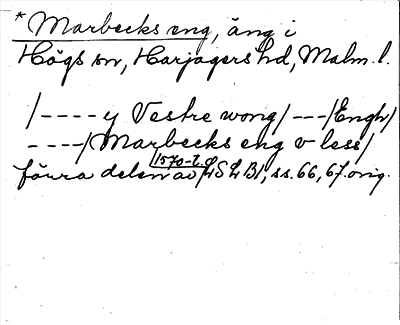 * Marbecks eng, äng i
Högs sn, Harjagers hd, Malm. l.
/---- y Vestre wong/ ---/Engh/
----/Marbecks eng v less/
1570-t.
förra delen av LSLB1, ss. 66, 67. orig.